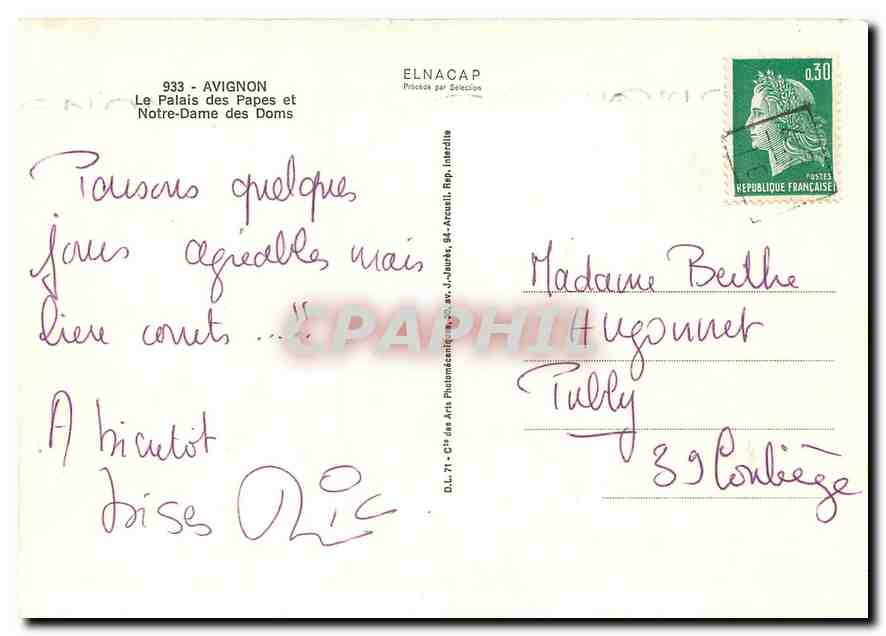 933 - AVIGNON
Le Palais des Papes et
Notre-Dame des Doms
ELNACAP
Procédé par Sélection
0,30
POSTES
REPUBLIQUE FRANÇAISE
Passons quelques
jours agréables mais
bien courts ...!!
A bientôt
bises
D.L. 71 - Cie des Arts Photomécaniques, av. J.-Jaurès, 94-Arcueil. Rep. Interdite
CPAPHIL
Madame Berthe
Hugonnet
Publy
39 Conliège